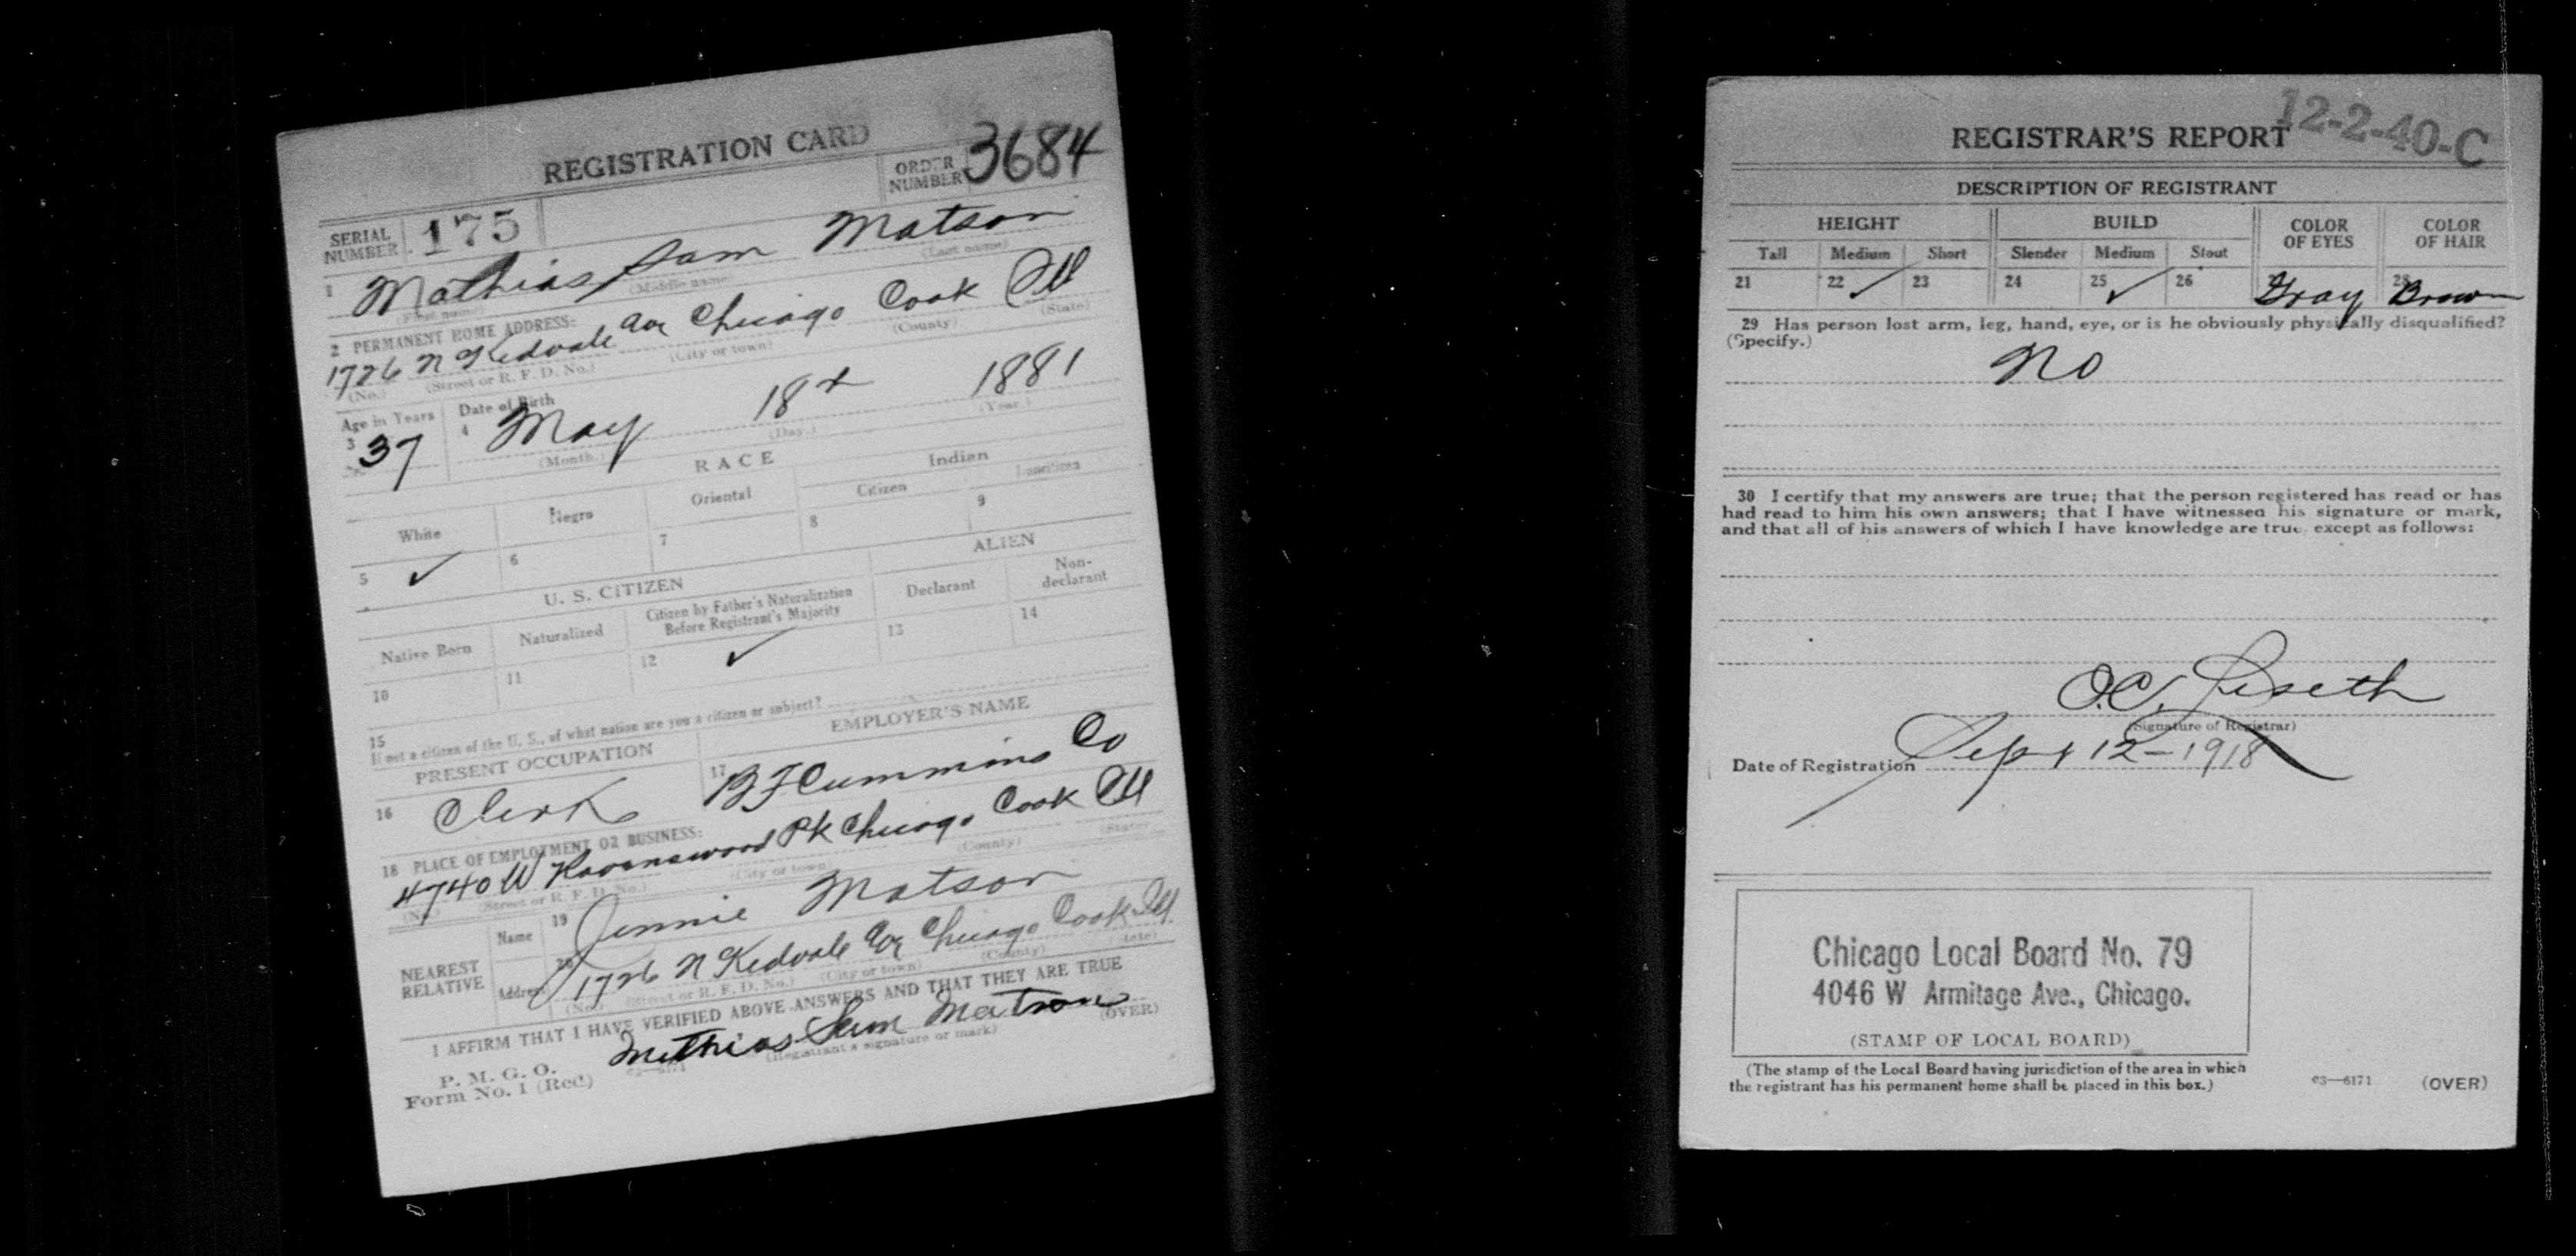 REGISTRATION CARD
SERIAL NUMBER 175 ORDER NUMBER 3684
1 Mathias Sam Matson
(First name) (Middle name) (Last name)
2 PERMANENT HOME ADDRESS:
1726 N Kedvale Av Chicago Cook Ill
(No.) (Street or R. F. D. No.) (City or town) (County) (State)
Age in Years Date of Birth
3 37 4 May 18 1881
(Month.) (Day.) (Year.)
RACE
White Negro Oriental Indian
Citizen Noncitizen
5 ✓ 6 7 8 9
U. S. CITIZEN ALIEN
Native Born Naturalized Citizen by Father's Naturalization Before Registrant's Majority Declarant Non-declarant
10 11 12 ✓ 13 14
15 If not a citizen of the U. S., of what nation are you a citizen or subject?
PRESENT OCCUPATION EMPLOYER'S NAME
16 Clerk 17 B F Cummins Co
18 PLACE OF EMPLOYMENT OR BUSINESS:
4740 W Ravenswood Pk Chicago Cook Ill
(No.) (Street or R. F. D. No.) (City or town) (County) (State)
NEAREST RELATIVE
Name 19 Jennie Matson
Address 20 1726 N Kedvale Av Chicago Cook Ill.
(No.) (Street or R. F. D. No.) (City or town) (County) (State)
I AFFIRM THAT I HAVE VERIFIED ABOVE ANSWERS AND THAT THEY ARE TRUE
P. M. G. O.
Form No. 1 (Red) Mathias Sam Matson
(Registrant's signature or mark) (OVER)
12-2-40-C
REGISTRAR'S REPORT
DESCRIPTION OF REGISTRANT
HEIGHT BUILD COLOR OF EYES COLOR OF HAIR
Tall Medium Short Slender Medium Stout
21 22 ✓ 23 24 25 ✓ 26 Gray 28 Brown
29 Has person lost arm, leg, hand, eye, or is he obviously physically disqualified?
(Specify.)
No
30 I certify that my answers are true; that the person registered has read or has
had read to him his own answers; that I have witnessed his signature or mark,
and that all of his answers of which I have knowledge are true, except as follows:
O.C.
(Signature of Registrar)
Date of Registration Sept 12-1918
Chicago Local Board No. 79
4046 W Armitage Ave., Chicago.
(STAMP OF LOCAL BOARD)
(The stamp of the Local Board having jurisdiction of the area in which
the registrant has his permanent home shall be placed in this box.)
03—6171 (OVER)